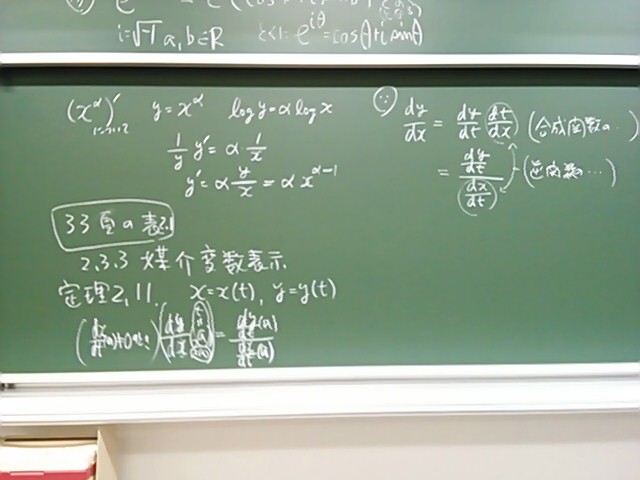 i=√-1 a,b∈R とくに e^{iθ}=cosθ+i sinθ
(x^α)' y=x^α log y=α log x
1/y y'=α 1/x
y'=α y/x=α x^{α-1}
33頁の表2.1
2.3.3 媒介変数表示
定理2.11. x=x(t), y=y(t)
dy/dx = dy/dt(a) / dx/dt(a)
∵ dy/dx = dy/dt dt/dx (合成関数の..)
= dy/dt / (dx/dt) (逆関数の...)